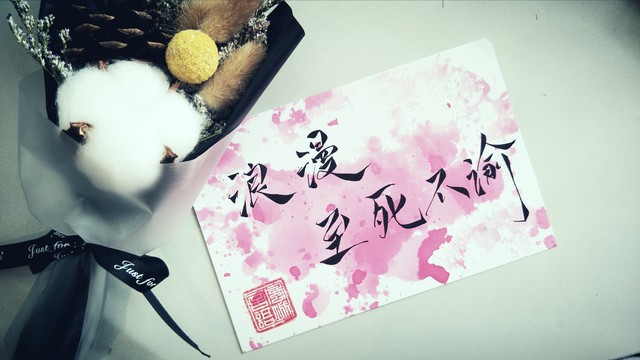 浪漫
至死不渝
Just for
Just for